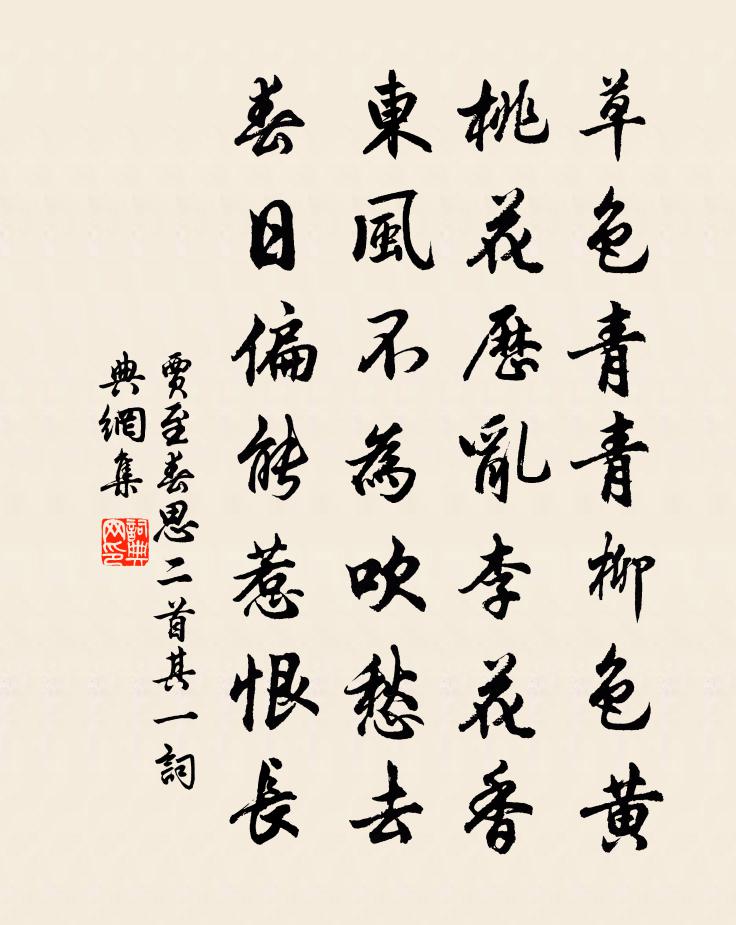 草色青青柳色黃
桃花歷亂李花香
東風不為吹愁去
春日偏能惹恨長
賈至春思二首其一詞
典網集
詞典網印